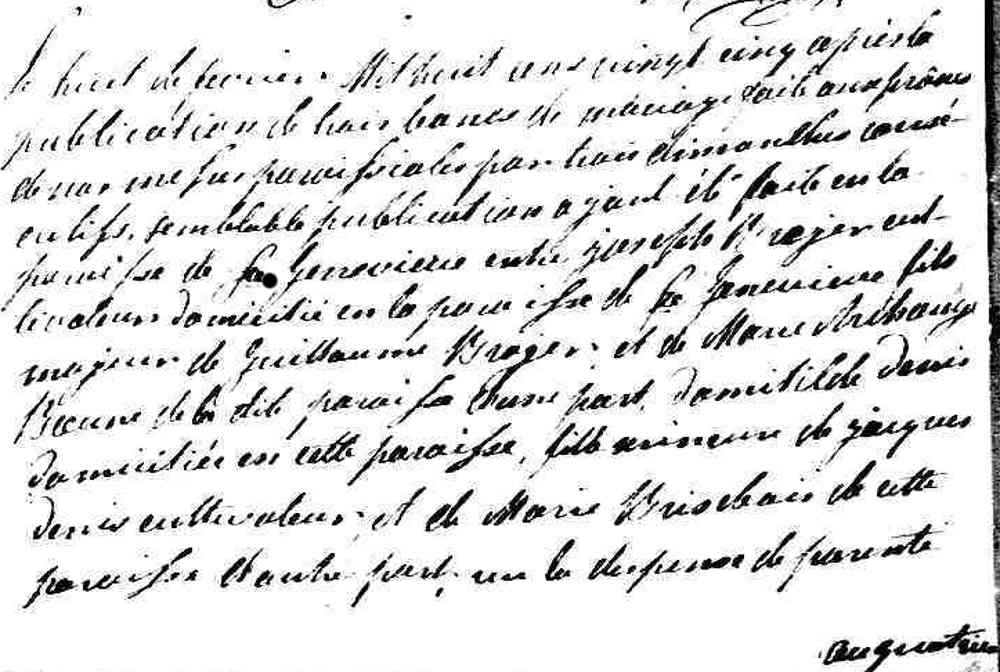 le huit de fevrier Mil huit cens vingt cinq après la
publication de trois bancs de mariage faite aux prônes
de nos messes paroissiales par trois dimanches consé-
cutifs, semblable publication ayant été faite en la
paroisse de Ste Genevieve entre joseph Broyer cul-
tivateur domicilié en la paroisse de Ste Genevieve fils
majeur de Guillaume Broyer et de Marie Archange
de la dite paroisse d'une part, domitilde denis
domiciliée en cette paroisse, fille mineure de jacques
denis cultivateur, et de Marie Brisebois de cette
paroisse d'autre part, vu la dispense de parenté
au quatrième